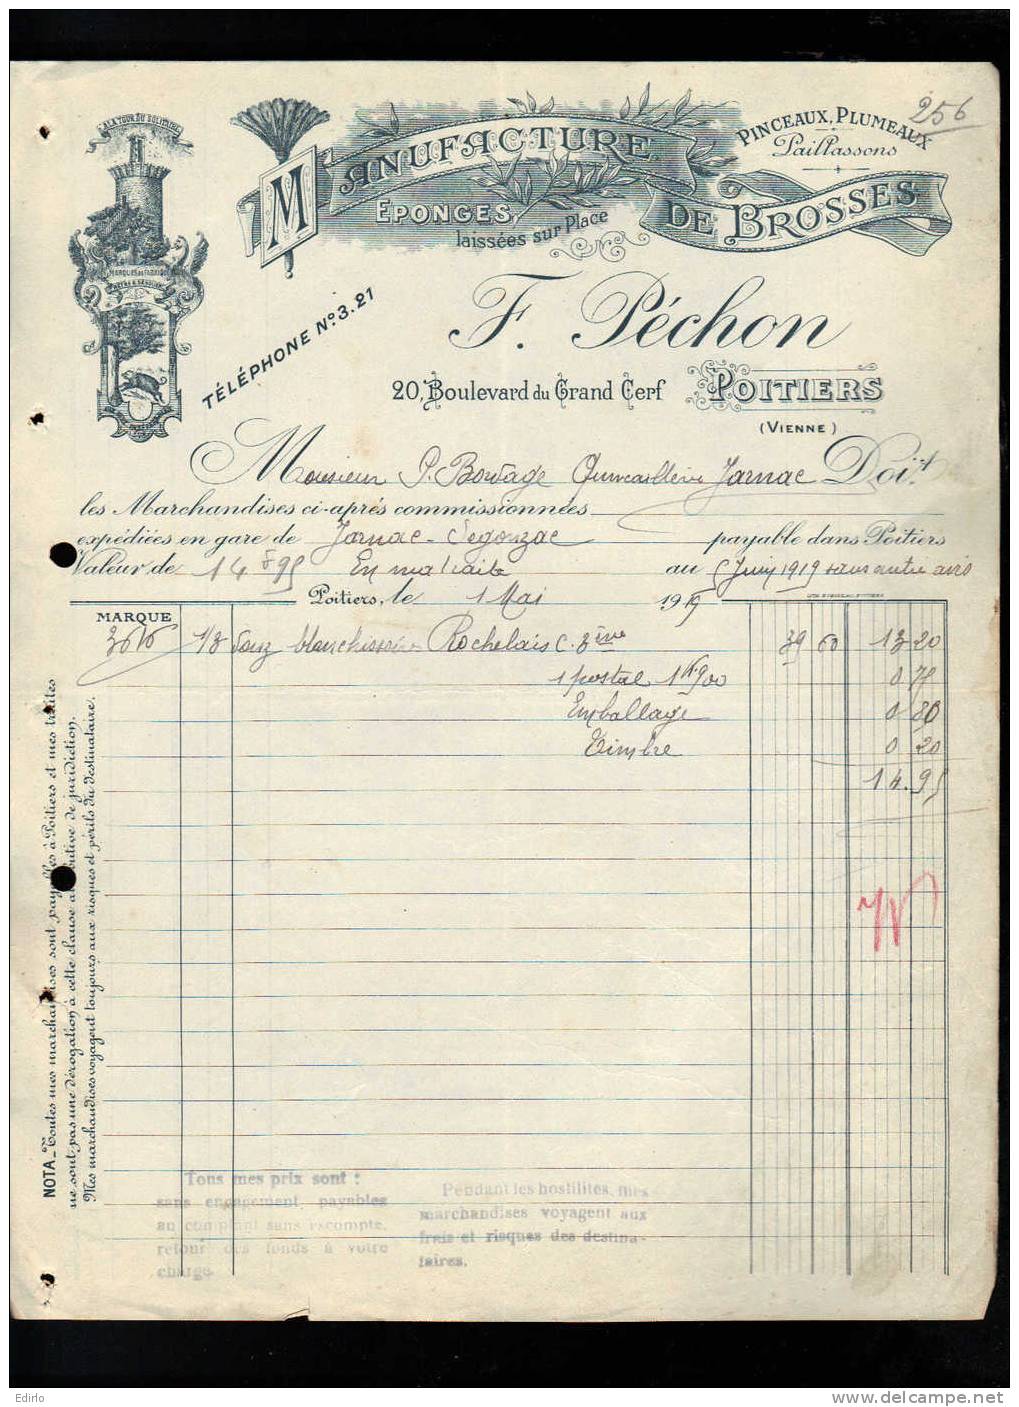 256
A LA TOUR DU SOLITAIRE
MANUFACTURE
DE BROSSES
EPONGES,
laissées sur Place
PINCEAUX, PLUMEAUX
Paillassons
MARQUES DE FABRIQUE
TÉLÉPHONE Nº 3.21
F. Péchon
20, Boulevard du Grand Cerf POITIERS
(VIENNE)
Monsieur P. Quincaillerie Jarnac Doit
les Marchandises ci-après commissionnées
expédiées en gare de Jarnac-Segonzac payable dans Poitiers
Valeur de 14f95 En ma traite au 5 Juin 1919 sans autre avis
Poitiers, le 1 Mai 1919
MARQUE
1/3 Douz blanchissoires Rochelais C. 3ème 39 60 13 20
1 postal 1K900 0 75
Emballage 0 80
Timbre 0 20
14.95
NOTA_Toutes mes marchandises sont payables à Poitiers et mes traites
ne sont pas une dérogation à cette clause attributive de juridiction.
Mes marchandises voyagent toujours aux risques et périls du destinataire.
Tous mes prix sont :
sans engagement, payables
au comptant sans escompte,
retour des fonds à votre
charge.
Pendant les hostilités, mes
marchandises voyagent aux
frais et risques des destina-
taires.
Edirlo
www.delcampe.net